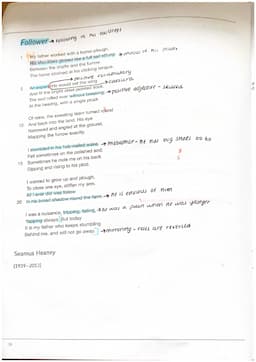 Follower → following in his footsteps
1 My father worked with a horse-plough,
His shoulders globed like a full sail strung
Between the shafts and the furrow.
The horse strained at his clicking tongue.
→ positive vocabulary
5 An expert. He would set the wing → caesura
And fit the bright steel-pointed sock.
The sod rolled over without breaking. → positive adjective - skilled
At the headrig, with a single pluck
Of reins, the sweating team turned round
10 And back into the land. His eye
Narrowed and angled at the ground,
Mapping the furrow exactly.
I stumbled in his hob-nailed wake, → metaphor - he has big shoes to
Fell sometimes on the polished sod;
15 Sometimes he rode me on his back
Dipping and rising to his plod.
I wanted to grow up and plough,
To close one eye, stiffen my arm.
All I ever did was follow
20 In his broad shadow round the farm. → he is envious of him
I was a nuisance, tripping, falling, → he was a pain when he was younger
Yapping always. But today
It is my father who keeps stumbling
Behind me, and will not go away. → roles are reversed
Seamus Heaney
(1939–2013)